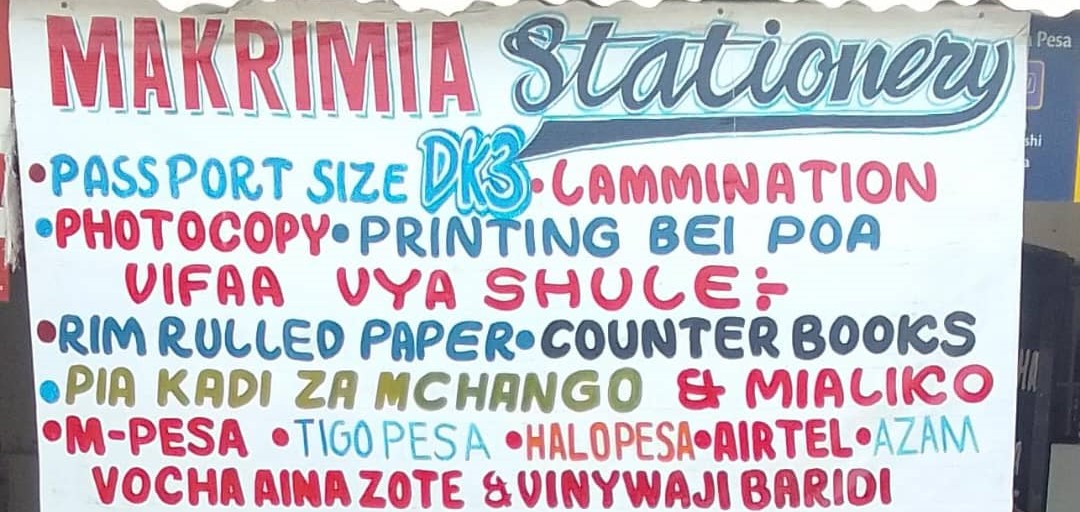 MAKRIMIA Stationery
•PASSPORT SIZE DK3 •LAMMINATION
•PHOTOCOPY •PRINTING BEI POA
VIFAA VYA SHULE:-
•RIM RULLED PAPER •COUNTER BOOKS
•PIA KADI ZA MCHANGO & MIALIKO
•M-PESA •TIGO PESA •HALOPESA •AIRTEL •AZAM
VOCHA AINA ZOTE & VINYWAJI BARIDI
Pesa